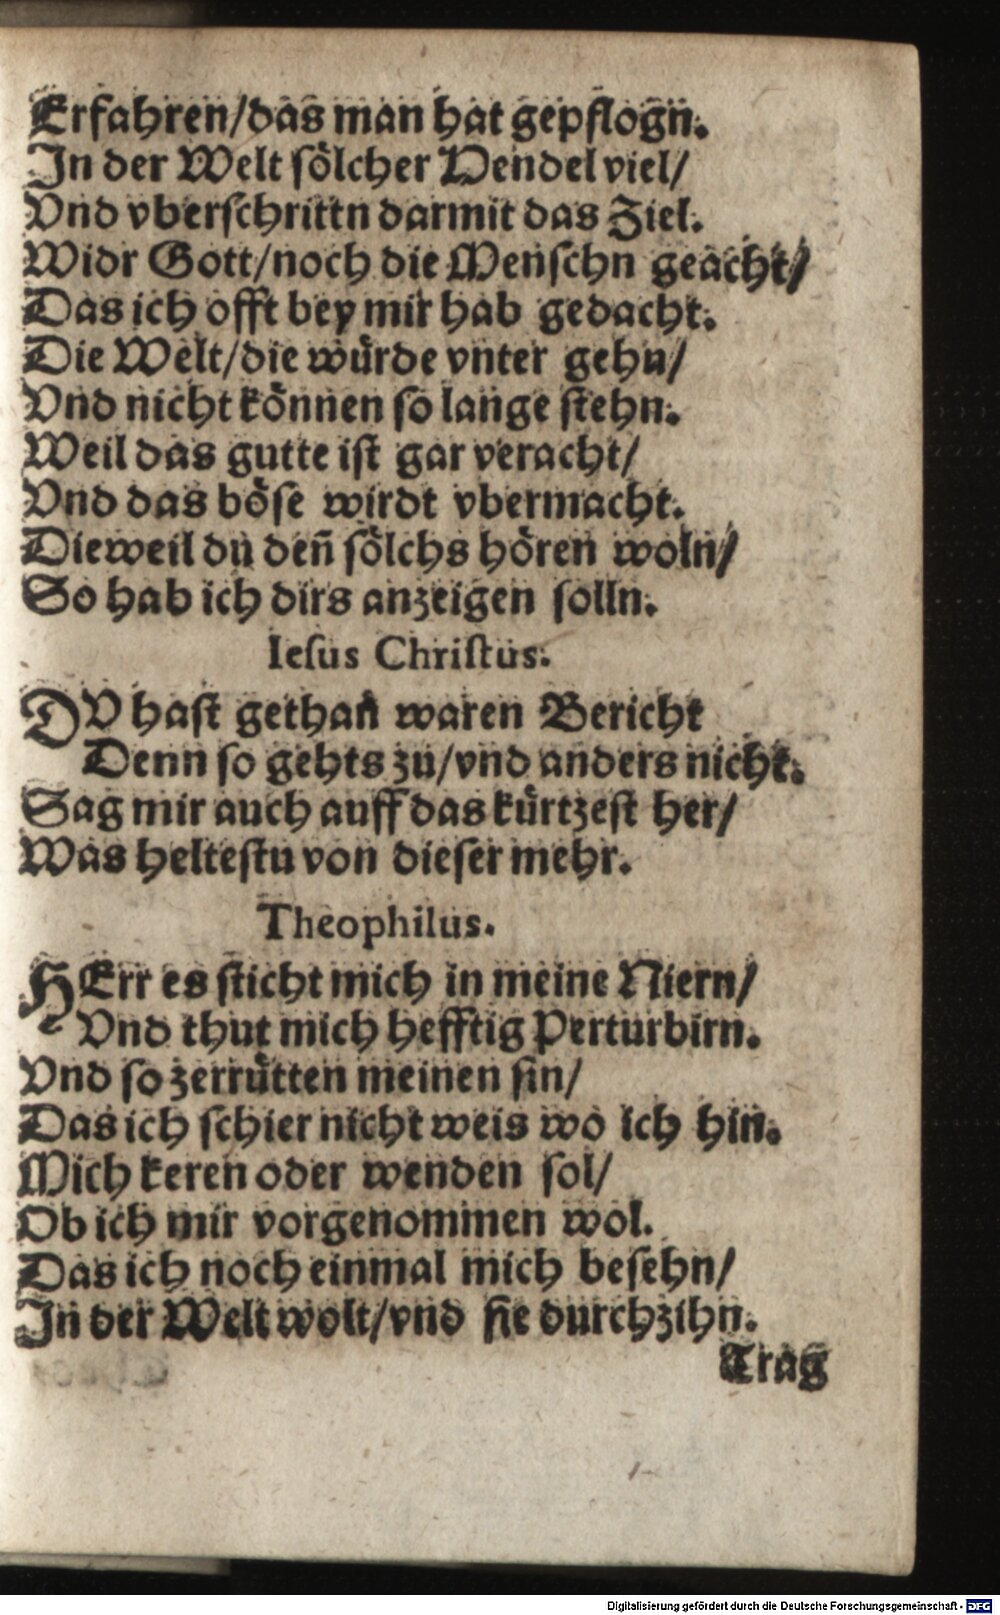 Erfahren/das man hat gepflogn.
In der Welt sölcher Hendel viel/
Vnd vberschrittn darmit das Ziel.
Widr Gott/noch die Menschn geacht/
Das ich offt bey mir hab gedacht.
Die Welt/die würde vnter gehn/
Vnd nicht können so lange stehn.
Weil das gutte ist gar veracht/
Vnd das böse wirdt vbermacht.
Dieweil du deñ sölchs hören woln/
So hab ich dirs anzeigen solln.
Iesus Christus.
DV hast gethan waren Bericht
Denn so gehts zu/vnd anders nicht.
Sag mir auch auff das kürtzest her/
Was heltestu von dieser mehr.
Theophilus.
HErr es sticht mich in meine Niern/
Vnd thut mich hefftig Perturbirn.
Vnd so zerrütten meinen sin/
Das ich schier nicht weis wo ich hin.
Mich keren oder wenden sol/
Ob ich mir vorgenommen wol.
Das ich noch einmal mich besehn/
In der Welt wolt/vnd sie durchzihn.
Trag
Digitalisierung gefördert durch die Deutsche Forschungsgemeinschaft - DFG